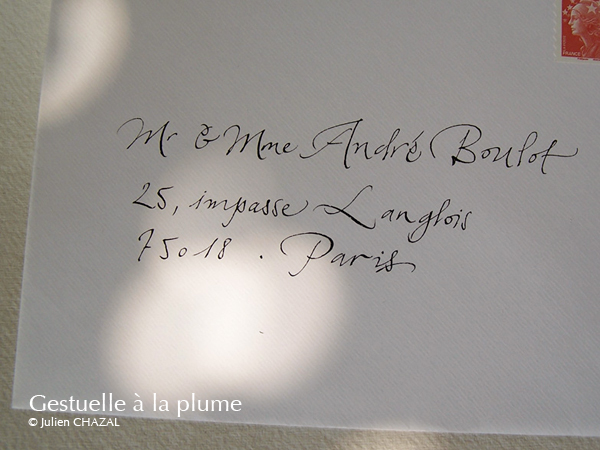 FRANCE
Mr & Mme André Boulot
25, impasse Langlois
75018 . Paris
Gestuelle à la plume
© Julien CHAZAL